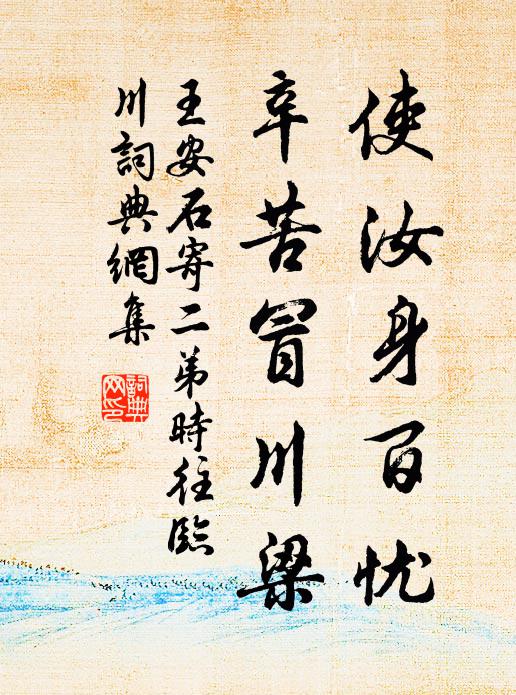 使汝身百忧
辛苦冒川梁
王安石寄二弟時往臨
川詞典網集
詞典
网印